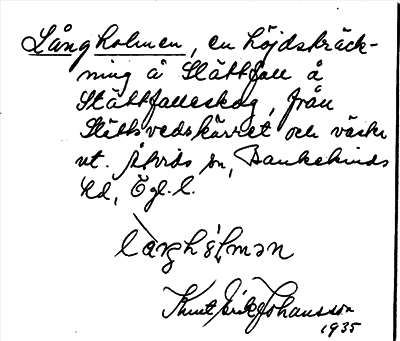 Långholmen, en höjdsträck-
ning å Slättfall å
Slättfalleskog, från
Slättsvedskärret och väster
ut. Åtvids sn, Bankekinds
hd, Ög. l.
Knut Erik Johansson
1935